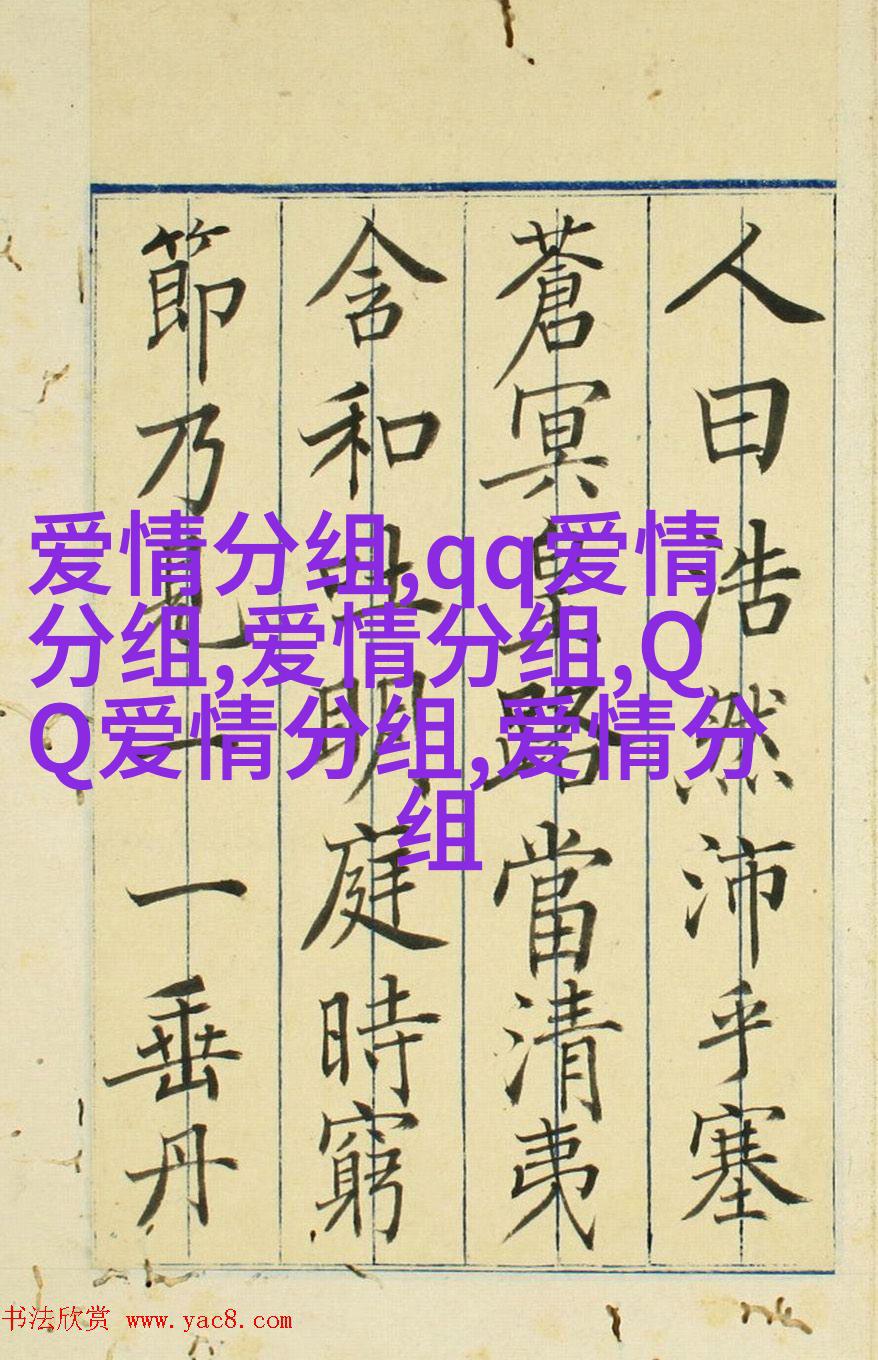 人曰浩然沛乎塞
蒼冥皇路當清夷
含和吐明庭時窮
節乃見一一垂丹
爱情分组,qq爱情
分组,爱情分组,Q
Q爱情分组,爱情分
组
书法欣赏 www.yac8.com